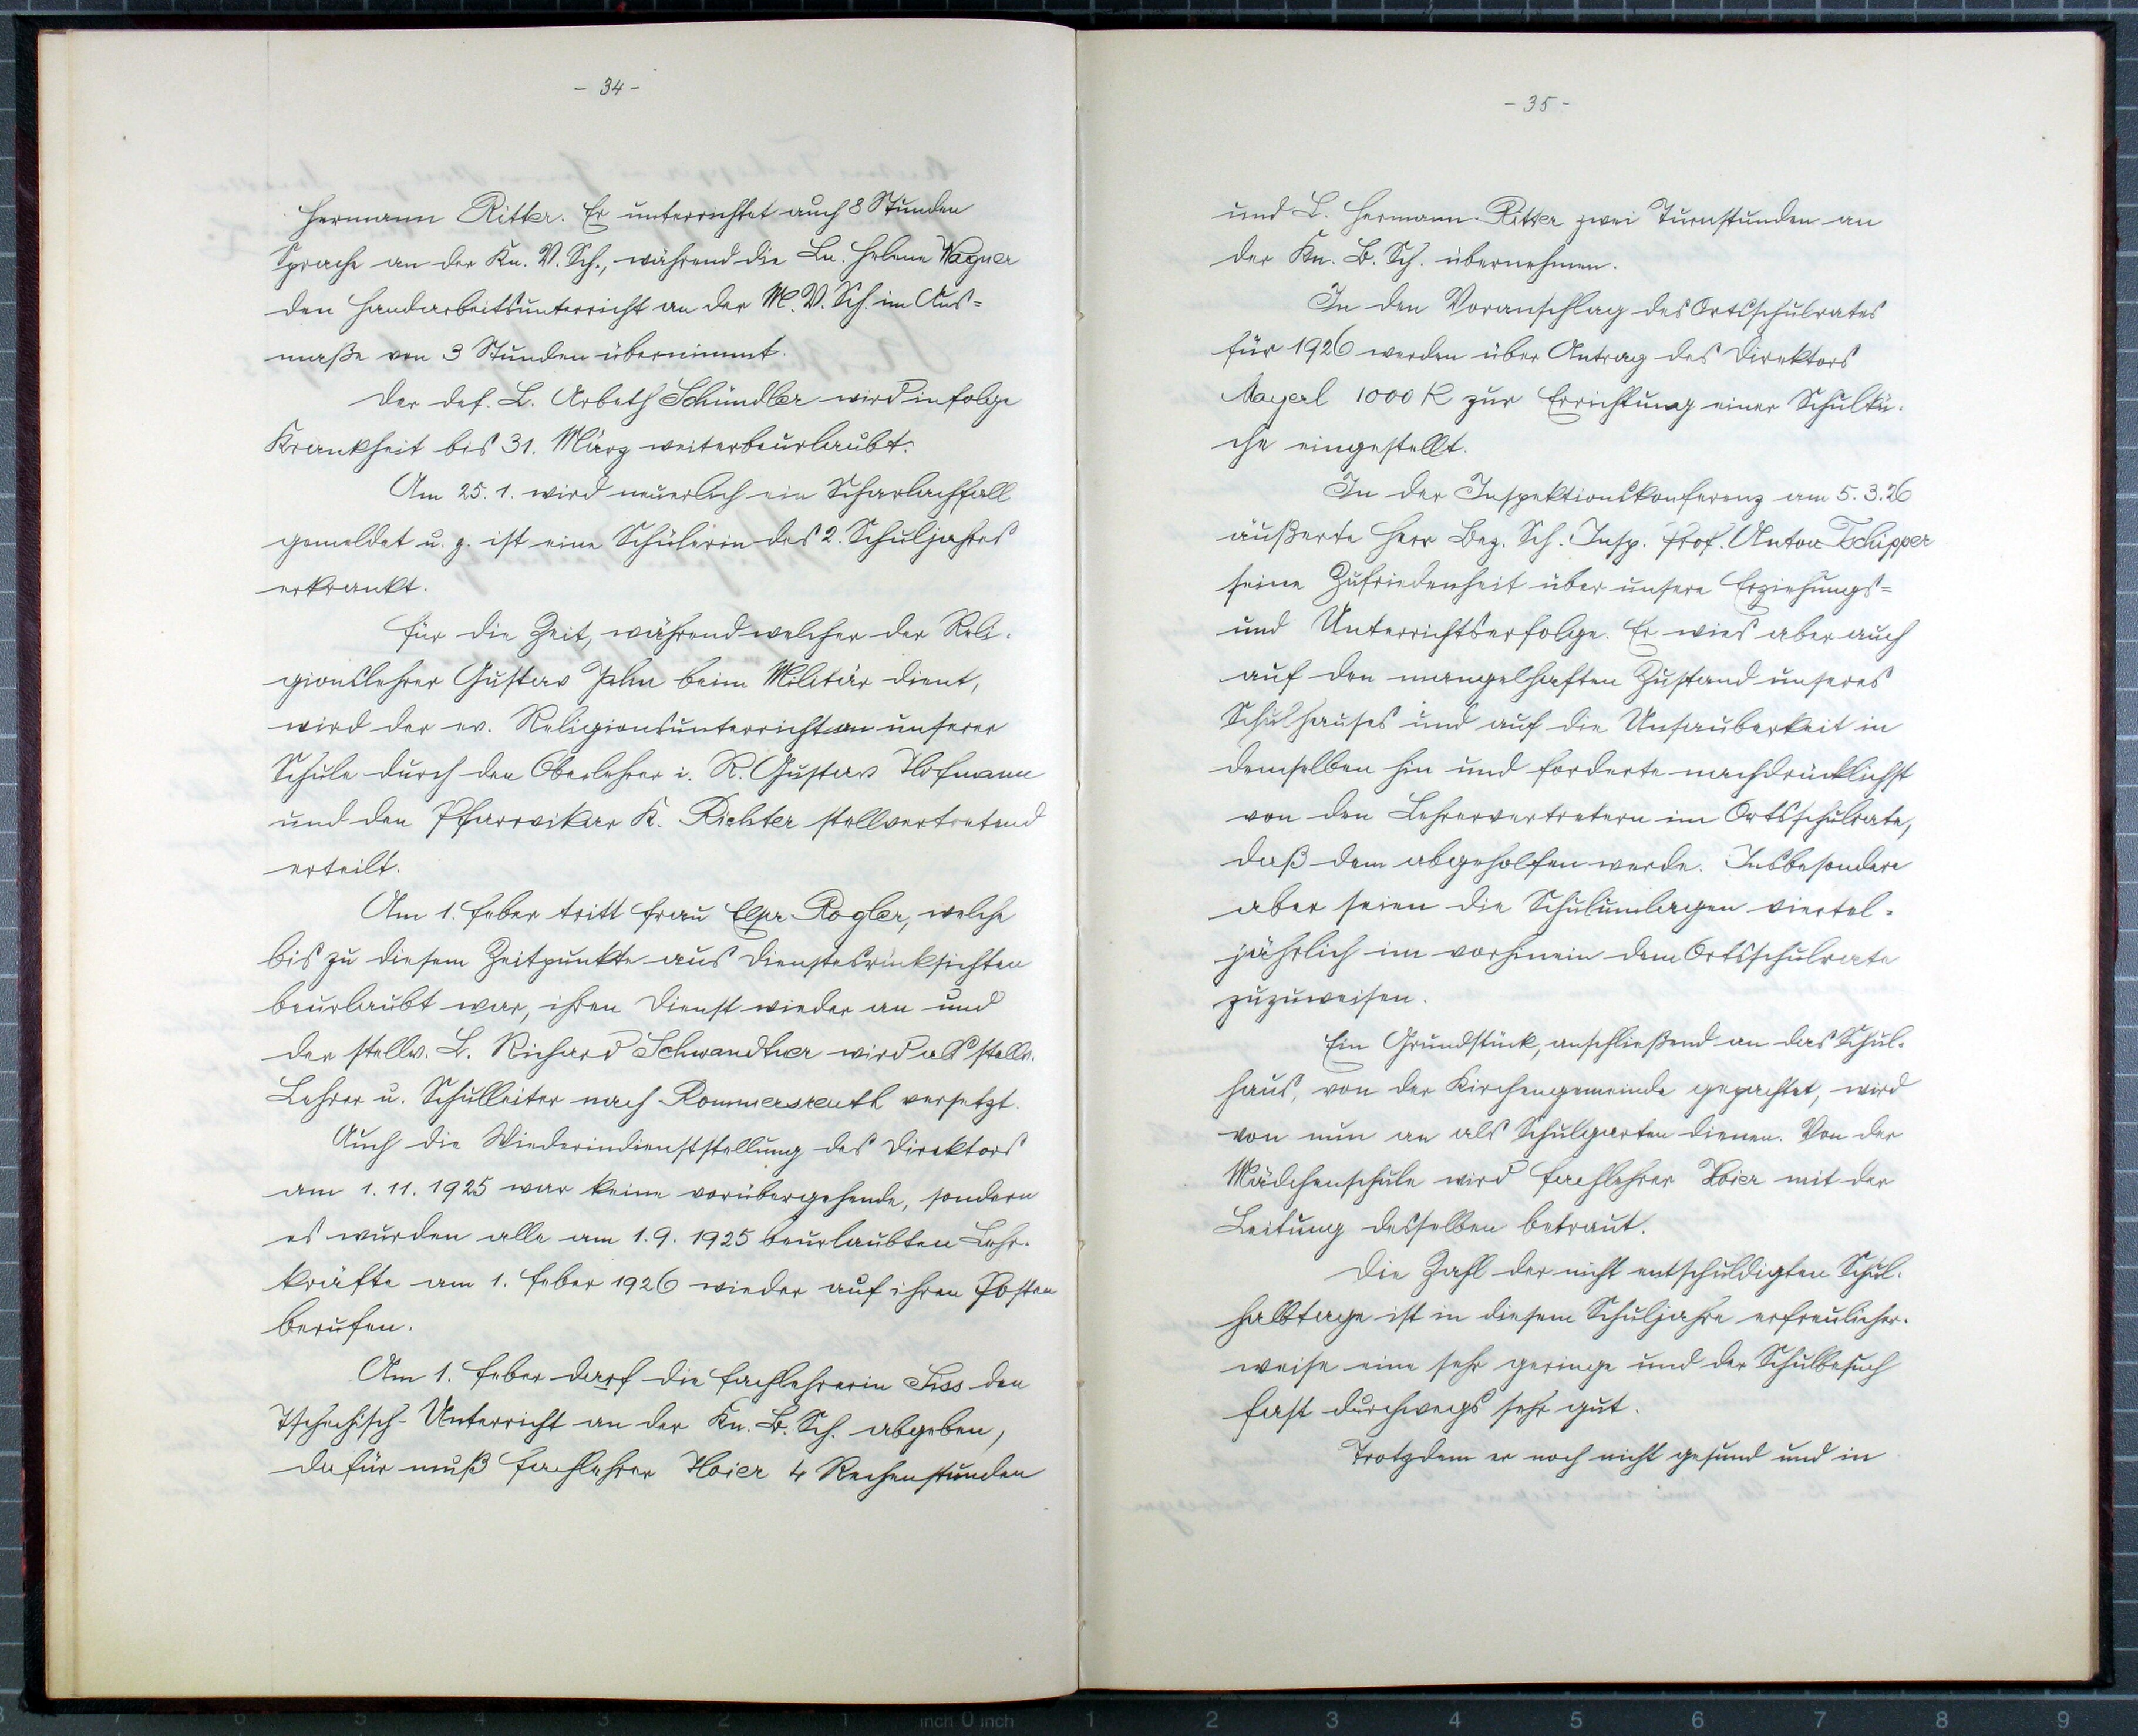 - 34 -
Hermann Ritter. Er unterrichtet auch 8 Stunden
Sprache an der Kn. V. Sch., während die Ln. Helene Wagner
den Handarbeitsunterricht an der M. V. Sch. im Aus=
maße von 3 Stunden übernimmt.
Der def. L. Arbeth Schindler wird infolge
Krankheit bis 31. März weiterbeurlaubt.
Am 25. 1. wird neuerlich ein Scharlachfall
gemeldet u. z. ist eine Schülerin des 2. Schuljahres
erkrankt.
Für die Zeit, während welcher der Reli-
gionslehrer Gustav Jahn beim Militär dient,
wird der ev. Religionsunterricht an unserer
Schule durch den Oberlehrer i. R. Gustav Hofmann
und den Pfarrvikar K. Richter stellvertretend
erteilt.
Am 1. Feber tritt Frau Elsa Rogler, welche
bis zu diesem Zeitpunkte aus Dienstesrücksichten
beurlaubt war, ihren Dienst wieder an und
der stellv. L. Richard Schwandtner wird als stellv.
Lehrer u. Schulleiter nach Rommersreuth versetzt.
Auch die Wiederindienststellung des Direktors
am 1. 11. 1925 war keine vorübergehende, sondern
es wurden alle am 1. 9. 1925 beurlaubten Lehr-
kräfte am 1. Feber 1926 wieder auf ihren Posten
berufen.
Am 1. Feber darf die Fachlehrerin Siss den
Tschechisch-Unterricht an der Kn. B. Sch. abgeben,
dafür muß Fachlehrer Hoier 4 Rechenstunden
- 35 -
und L. Hermann Ritter zwei Turnstunden an
der Kn. B. Sch. übernehmen.
In den Voranschlag des Ortsschulrates
für 1926 werden über Antrag des Direktors
Mayerl 1000 K zur Errichtung einer Schulkü-
che eingestellt.
In der Inspektionskonferenz am 5. 3. 26
äußerte Herr Bez. Sch. Insp. Prof. Anton Tschipper
seine Zufriedenheit über unsere Erziehungs=
und Unterrichtserfolge. Er wies aber auch
auf den mangelhaften Zustand unseres
Schulhauses und auf die Unsauberkeit in
demselben hin und forderte nachdrücklichst
von den Lehrervertretern im Ortsschulrate,
daß dem abgeholfen werde. Insbesondere
aber seien die Schulumlagen viertel=
jährlich im vorhinein dem Ortsschulrate
zuzuweisen.
Ein Grundstück, anschließend an das Schul-
haus, von der Kirchengemeinde gepachtet, wird
von nun an als Schulgarten dienen. Von der
Mädchenschule wird Fachlehrer Hoier mit der
Leitung desselben betraut.
Die Zahl der nicht entschuldigten Schul-
halbtage ist in diesem Schuljahre erfreulicher-
weise eine sehr geringe und der Schulbesuch
fast durchwegs sehr gut.
Trotzdem er noch nicht gesund und in
7 6 5 4 3 2 1 inch 0 inch 1 2 3 4 5 6 7 8 9